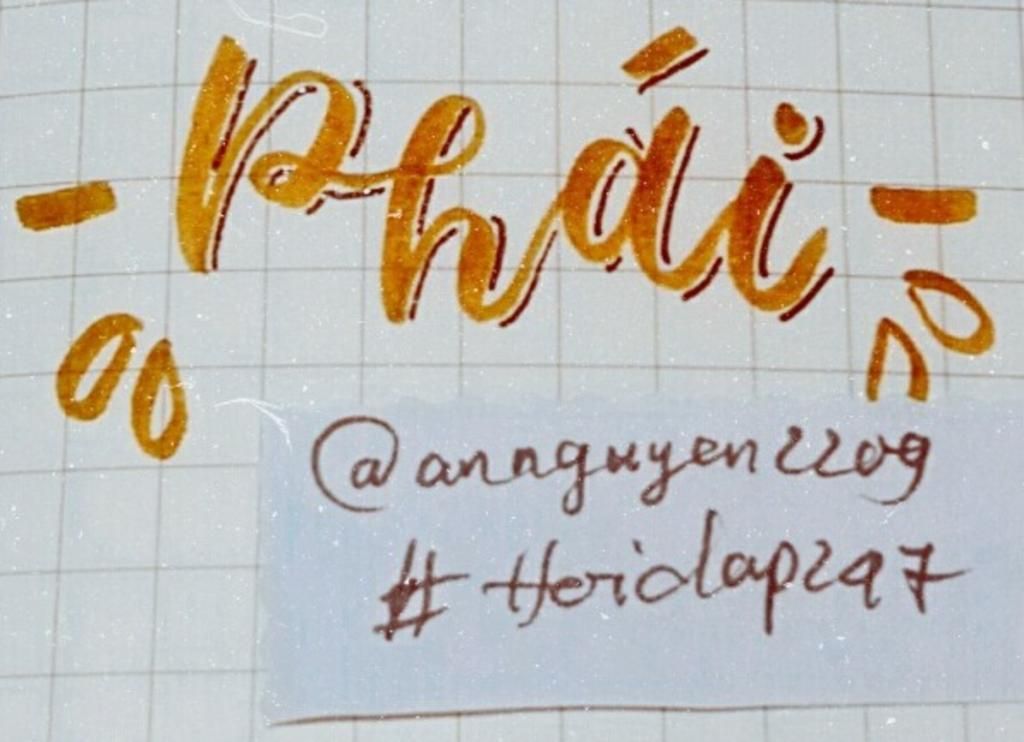 - Phái -
@annguyen2209
#Hoidap247